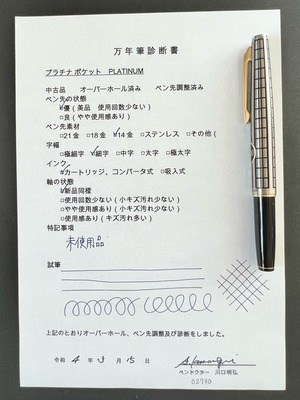 万年筆診断書
プラチナ ポケット PLATINUM
中古品 オーバーホール済み ペン先調整済み
ペン先の状態
☑優(美品 使用回数少ない)
□良(やや使用感あり)
ペン先素材
□21金 □18金 ☑14金 □ステンレス □その他(
字幅
□極細字 ☑細字 □中字 □太字 □極太字
インク
☑カートリッジ、コンバータ式 □吸入式
軸の状態
☑新品同様
□使用回数少ない(小キズ汚れ少ない)
□やや使用感あり(小キズ汚れ少ない)
□使用感あり(キズ汚れ多い)
特記事項
未使用品
試筆
上記のとおりオーバーホール、ペン先調整及び診断をしました。
令和 4年 3月 15日
ペンドクター 川口明弘
02730